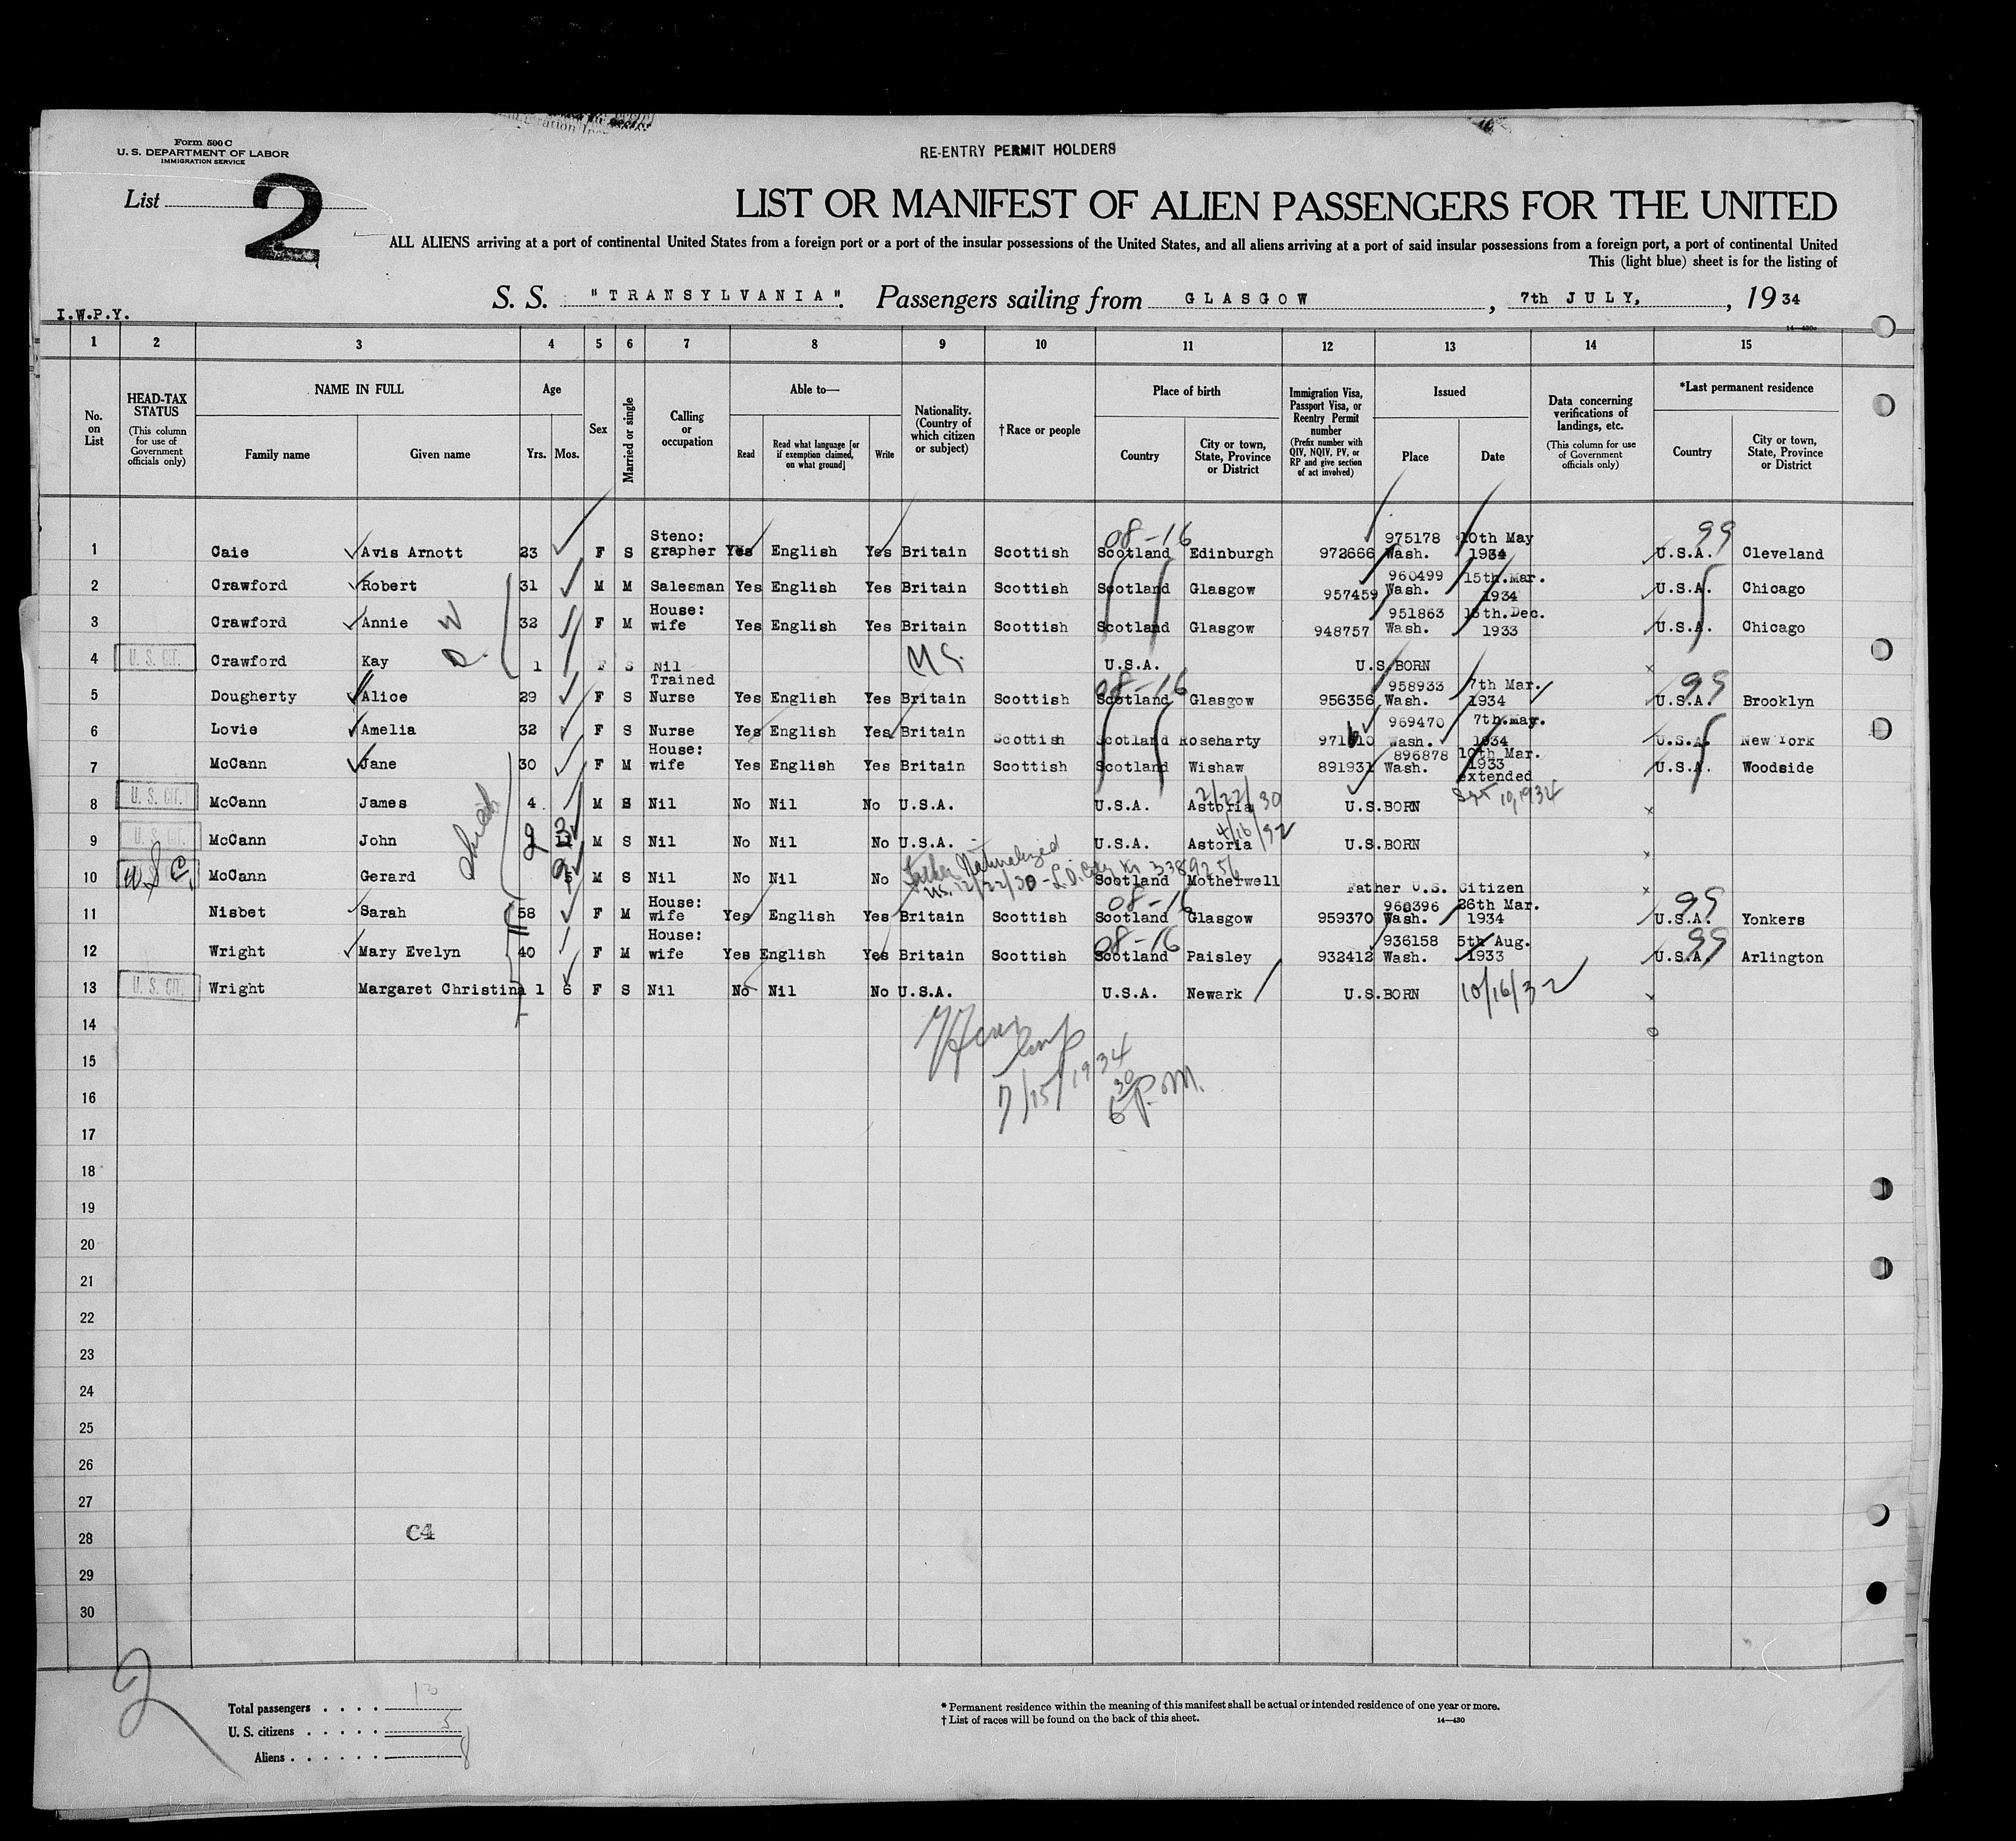 Form 500 C
U. S. DEPARTMENT OF LABOR
IMMIGRATION SERVICE
RE-ENTRY PERMIT HOLDERS
List 2
LIST OR MANIFEST OF ALIEN PASSENGERS FOR THE UNITED
ALL ALIENS arriving at a port of continental United States from a foreign port or a port of the insular possessions of the United States, and all aliens arriving at a port of said insular possessions from a foreign port, a port of continental United
This (light blue) sheet is for the listing of
S. S. "TRANSYLVANIA". Passengers sailing from GLASGOW, 7th JULY, 1934
I.W.P.Y.
14—430c
1 2 3 4 5 6 7 8 9 10 11 12 13 14 15
No. on List
HEAD-TAX STATUS (This column for use of Government officials only)
NAME IN FULL
Family name Given name
Age
Yrs. Mos.
Sex
Married or single
Calling or occupation
Able to—
Read Read what language [or if exemption claimed, on what ground] Write
Nationality. (Country of which citizen or subject)
†Race or people
Place of birth
Country City or town, State, Province or District
Immigration Visa, Passport Visa, or Reentry Permit number (Prefix number with QIV, NQIV, PV, or RP and give section of act involved)
Issued
Place Date
Data concerning verifications of landings, etc. (This column for use of Government officials only)
*Last permanent residence
Country City or town, State, Province or District
08-16 99
1 Caie Avis Arnott 23 F S Steno: grapher Yes English Yes Britain Scottish Scotland Edinburgh 972666 975178 Wash. 10th May 1934 U.S.A. Cleveland
2 Crawford Robert 31 M M Salesman Yes English Yes Britain Scottish Scotland Glasgow 957459 960499 Wash. 15th.Mar. 1934 U.S.A. Chicago
3 Crawford Annie 32 F M House: wife Yes English Yes Britain Scottish Scotland Glasgow 948757 951863 Wash. 15th.Dec. 1933 U.S.A. Chicago
4 U. S. CIT. Crawford Kay 1 F S Nil U.S. U.S.A. U.S.BORN x
08-16 99
5 Dougherty Alice 29 F S Trained Nurse Yes English Yes Britain Scottish Scotland Glasgow 956356 958933 Wash. 7th Mar. 1934 U.S.A. Brooklyn
6 Lovie Amelia 32 F S Nurse Yes English Yes Britain Scottish Scotland Roseharty 971610 969470 Wash. 7th.May. 1934 U.S.A. New York
7 McCann Jane 30 F M House: wife Yes English Yes Britain Scottish Scotland Wishaw 891931 896878 Wash. 10th Mar. 1933 extended Sept 10, 1934 U.S.A. Woodside
8 U. S. CIT. McCann James 4 M S Nil No Nil No U.S.A. U.S.A. Astoria 2/22/30 U.S.BORN x
9 U. S. CIT. McCann John 2 3 M S Nil No Nil No U.S.A. U.S.A. Astoria 4/16/32 U.S.BORN x
10 U S C. McCann Gerard 9 M S Nil No Nil No Father Naturalized U.S. 12/22/30 Scotland Motherwell Father U.S. Citizen x
08-16 99
11 Nisbet Sarah 58 F M House: wife Yes English Yes Britain Scottish Scotland Glasgow 959370 960396 Wash. 26th Mar. 1934 U.S.A. Yonkers
08-16 99
12 Wright Mary Evelyn 40 F M House: wife Yes English Yes Britain Scottish Scotland Paisley 932412 936158 Wash. 5th Aug. 1933 U.S.A. Arlington
13 U. S. CIT. Wright Margaret Christina 1 6 F S Nil No Nil No U.S.A. U.S.A. Newark U.S.BORN 10/16/32 x
14
15
7/15/1934 6 30 P.M.
16
17
18
19
20
21
22
23
24
25
26
27
28 C4
29
30
2
Total passengers . . . . 13
U. S. citizens . . . . . 5
Aliens . . . . . . 8
* Permanent residence within the meaning of this manifest shall be actual or intended residence of one year or more.
† List of races will be found on the back of this sheet. 14—430